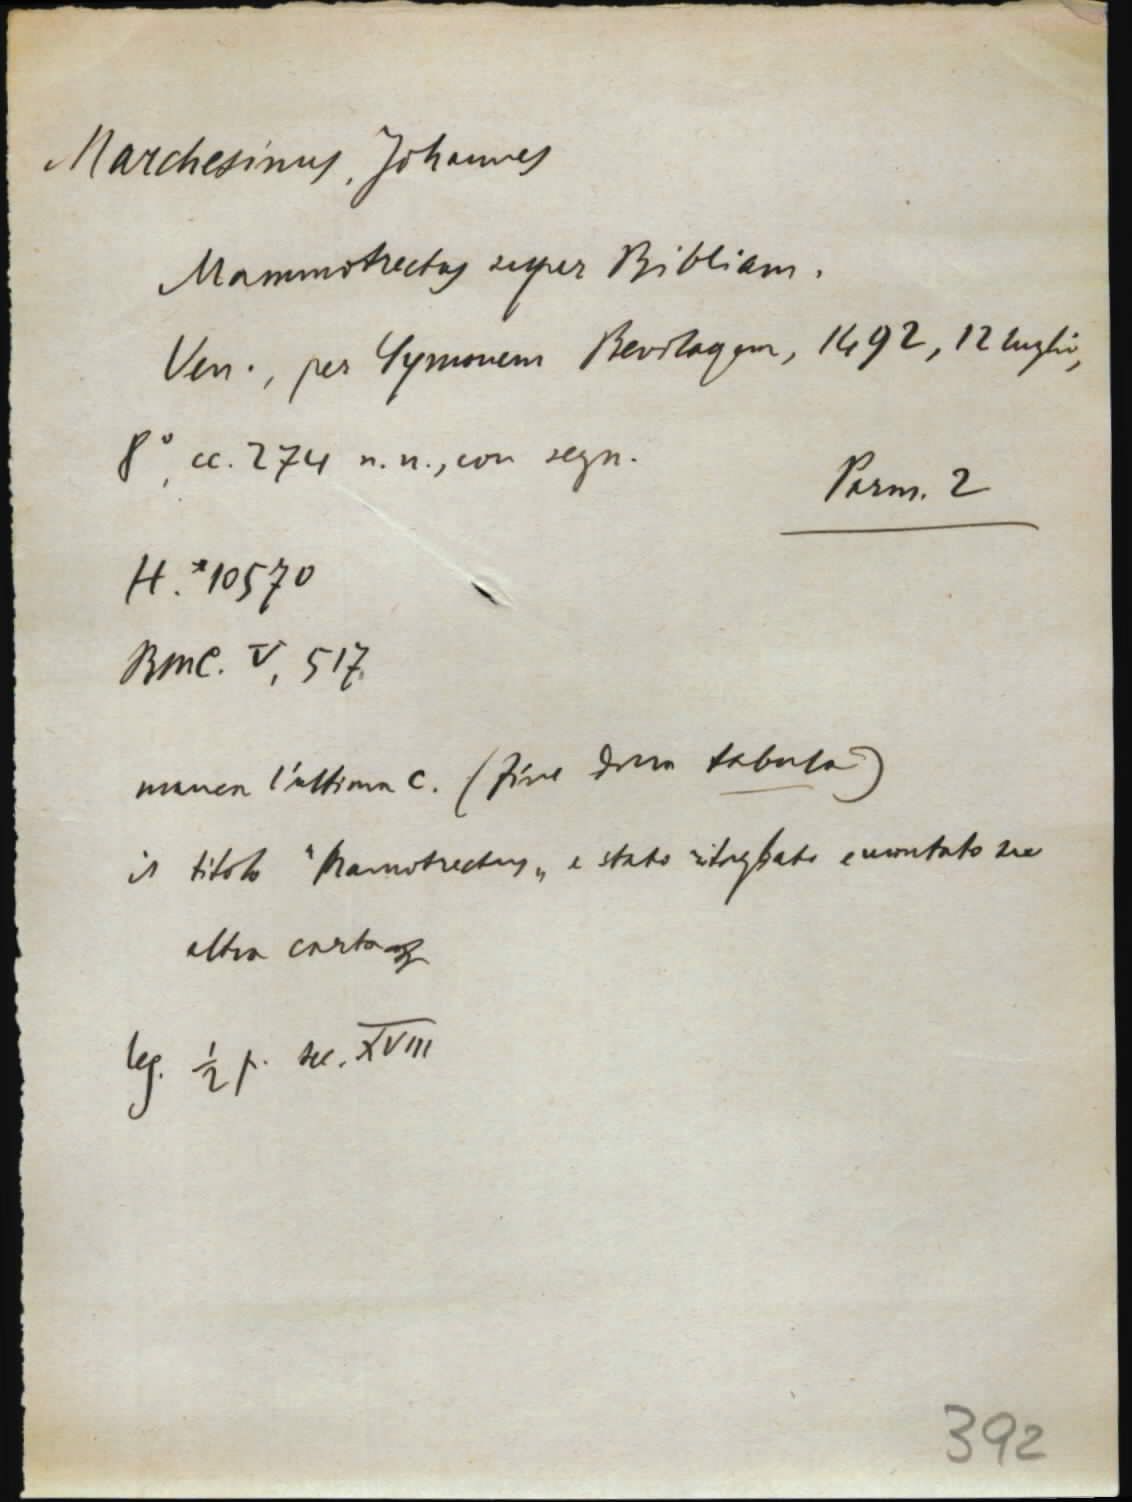 Marchesinus, Johannes
Mammotrectus super Bibliam.
Ven., per Symonem Bevilaqua, 1492, 12 luglio,
8°, cc. 274 n.n., con segn.
Parm. 2
H. *10570
BMC. V, 517
manca l'ultima c. (fine della tabula)
il titolo "Mamotrectus" è stato ritagliato e montato su
altra carta
leg. ½ p. sec. XVIII
392